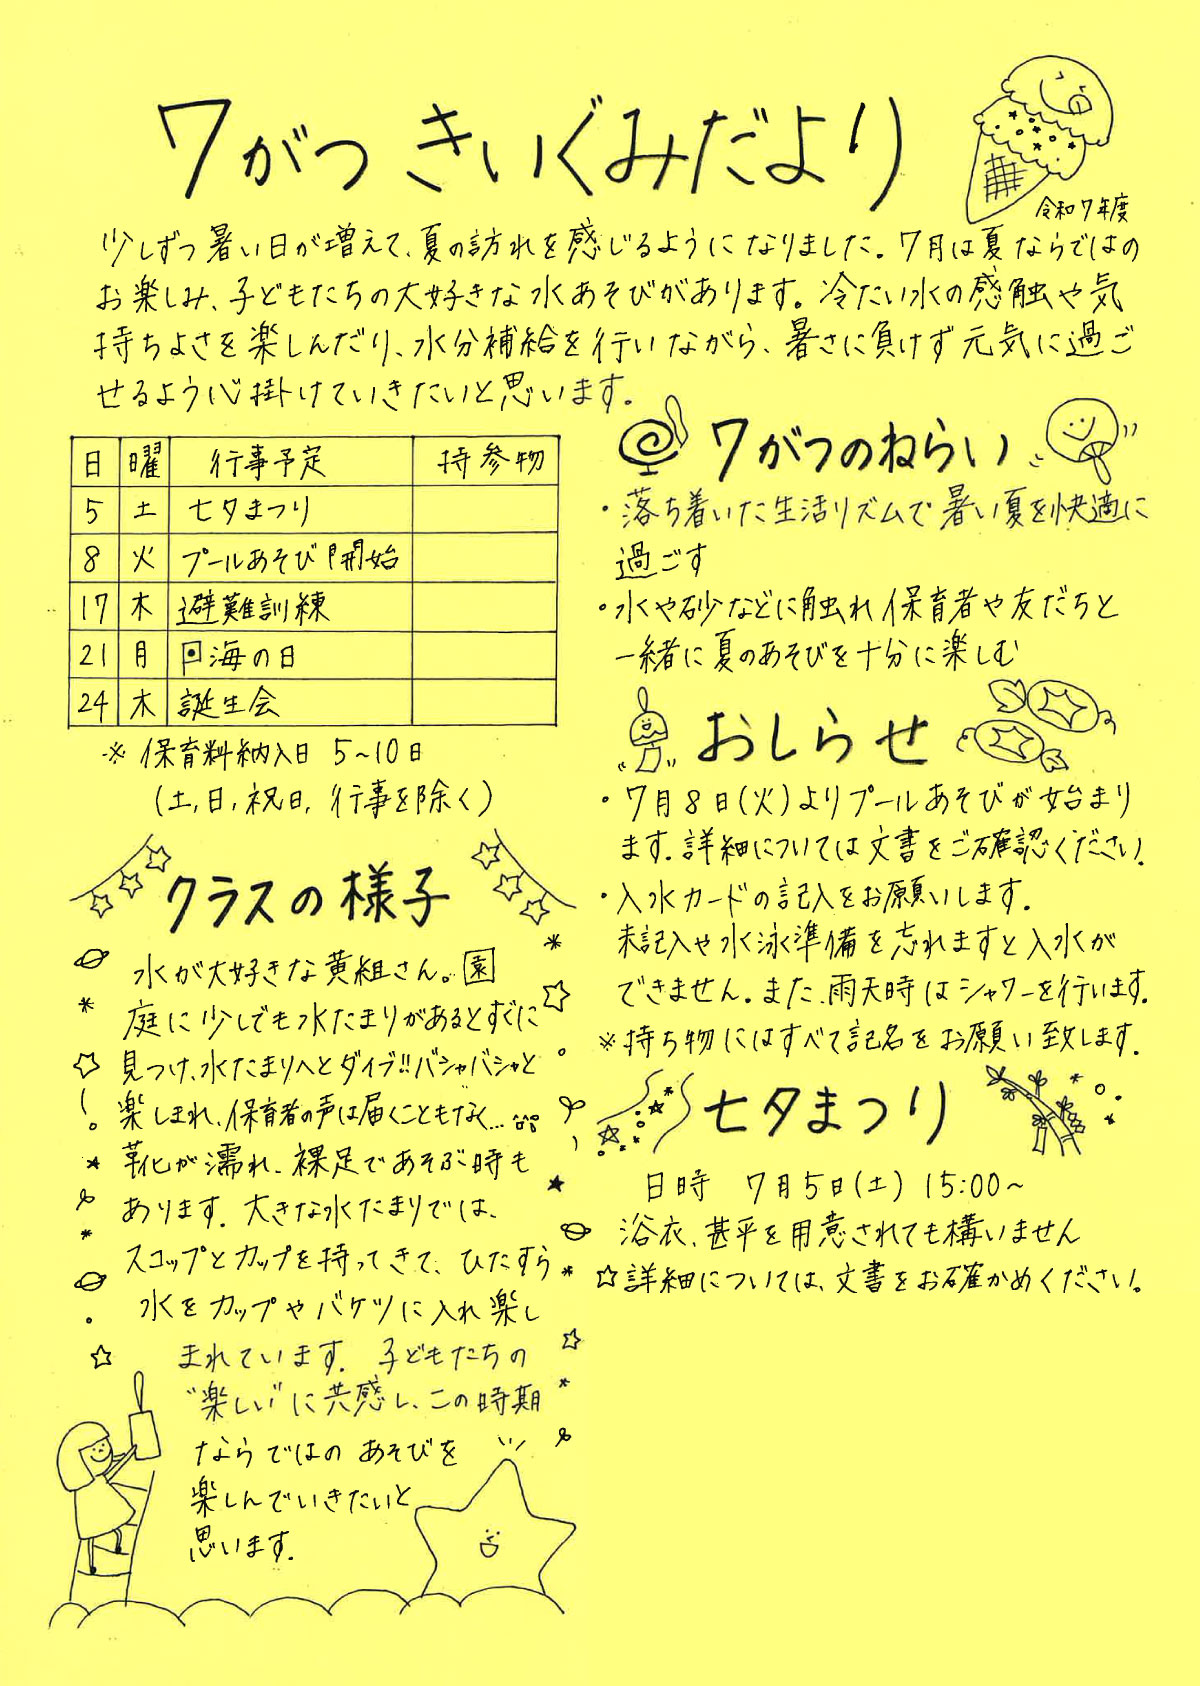 7がつ きいぐみだより
令和7年度
少しずつ暑い日が増えて、夏の訪れを感じるようになりました。7月は夏ならではの
お楽しみ、子どもたちの大好きな水あそびがあります。冷たい水の感触や気
持ちよさを楽しんだり、水分補給を行いながら、暑さに負けず元気に過ご
せるよう心掛けていきたいと思います。
日 曜 行事予定 持参物
5 土 七夕まつり
8 火 プールあそび開始
17 木 避難訓練
21 月 海の日
24 木 誕生会
※ 保育料納入日 5~10日
(土,日,祝日,行事を除く)
クラスの様子
水が大好きな黄組さん。園
庭に少しでも水たまりがあるとすぐに
見つけ、水たまりへとダイブ!!バシャバシャと
楽しまれ、保育者の声は届くこともなく...
靴が濡れ、裸足であそぶ時も
あります。大きな水たまりでは、
スコップとカップを持ってきて、ひたすら
水をカップやバケツに入れ楽し
まれています。子どもたちの
"楽しい"に共感し、この時期
ならではのあそびを
楽しんでいきたいと
思います。
7がつのねらい
・落ち着いた生活リズムで暑い夏を快適に
過ごす
・水や砂などに触れ保育者や友だちと
一緒に夏のあそびを十分に楽しむ
おしらせ
・7月8日(火)よりプールあそびが始まり
ます。詳細については文書をご確認ください。
・入水カードの記入をお願いします。
未記入や水泳準備を忘れますと入水が
できません。また、雨天時はシャワーを行います。
※持ち物にはすべて記名をお願い致します。
七夕まつり
日時 7月5日(土) 15:00~
浴衣、甚平を用意されても構いません
☆詳細については、文書をお確かめください。